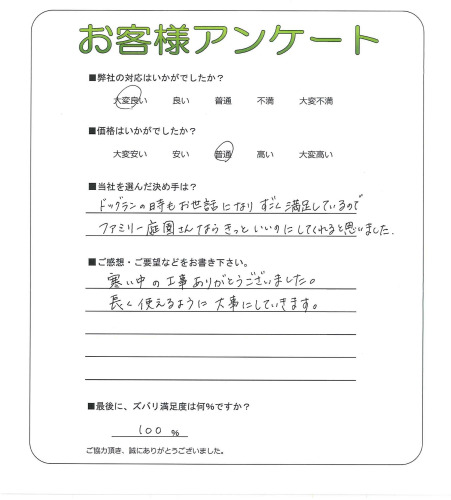 お客様アンケート
■弊社の対応はいかがでしたか？
大変良い 良い 普通 不満 大変不満
■価格はいかがでしたか？
大変安い 安い 普通 高い 大変高い
■当社を選んだ決め手は？
ドッグランの時もお世話になり すごく満足しているので
ファミリー庭園さんなら きっと いいのにしてくれると思いました.
■ご感想・ご要望などをお書き下さい。
寒い中の工事ありがとうございました。
長く使えるように大事にしていきます。
■最後に、ズバリ満足度は何％ですか？
100 ％
ご協力頂き、誠にありがとうございました。